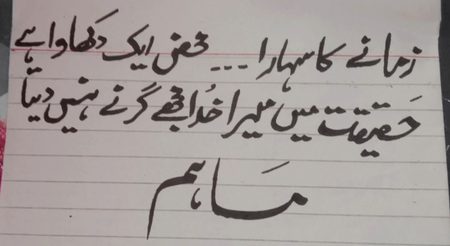 زمانے کا سہارا --- محض ایک دکھاوا ہے
حَقیقت میں میرا خُدا مجھے گرنے نہیں دیتا
ماہم